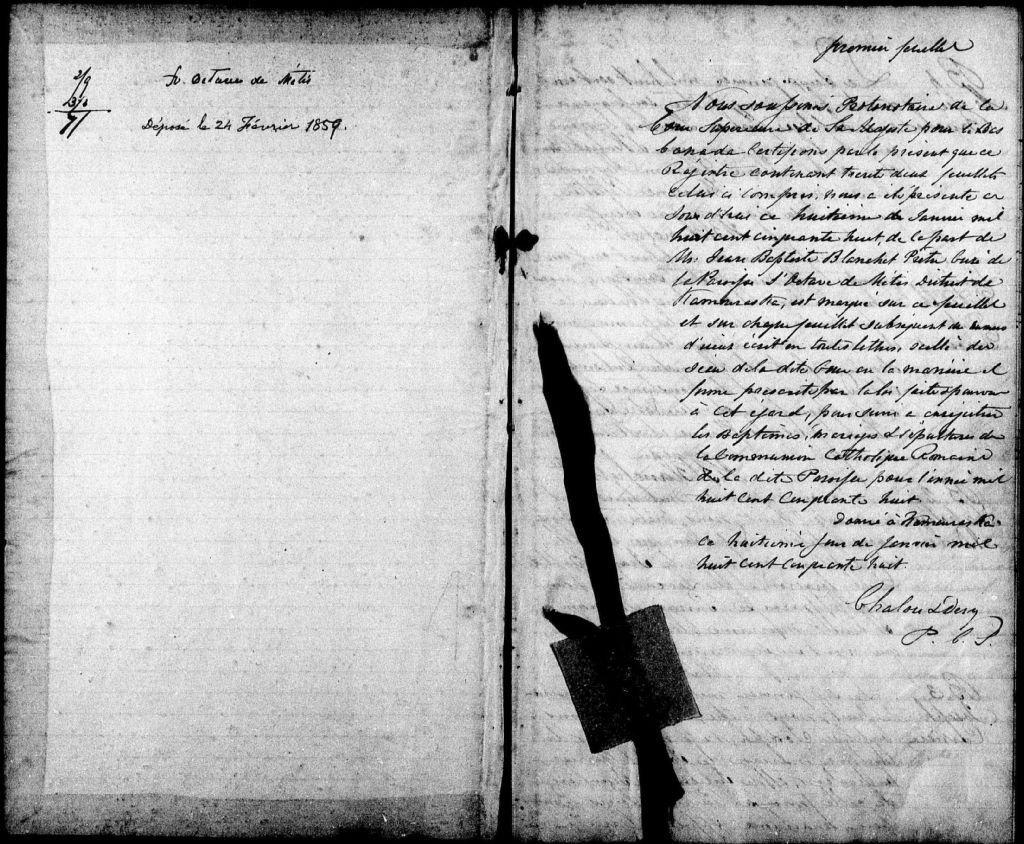 St. Octave de Métis
Déposé le 24 Février 1859.
premier feuillet
Nous soussignés Protonotaire de la
Cour Superieure de Sa Majesté pour le Bas
Canada Certifions par le présent que ce
Régistre contenant trente deux feuillets
celui ci compris, nous a été présenté ce
Jourd'hui ce huitieme de Janvier mil
huit cent cinquante huit, de la part de
Mr Jean Baptiste Blanchet Prêtre Curé de
la Paroisse St Octave de Métis District de
Kamouraska, est marqué sur ce feuillet
et sur chaque feuillet subséquent du
écrit en toutes lettres, scellé du
sceau de la dite Cour en la manière et
forme par la loi faite et pourvue
à cet égard, pour servir a enregistrer
les Baptêmes, mariages & Sépultures de
la Communion Catholique Romaine
de la dite Paroisse pour l'année mil
huit cent cinquante huit
Donné à Kamouraska
ce huitieme jour de Janvier mil
huit cent cinquante huit.
Chalou & Dery
P. C. S.